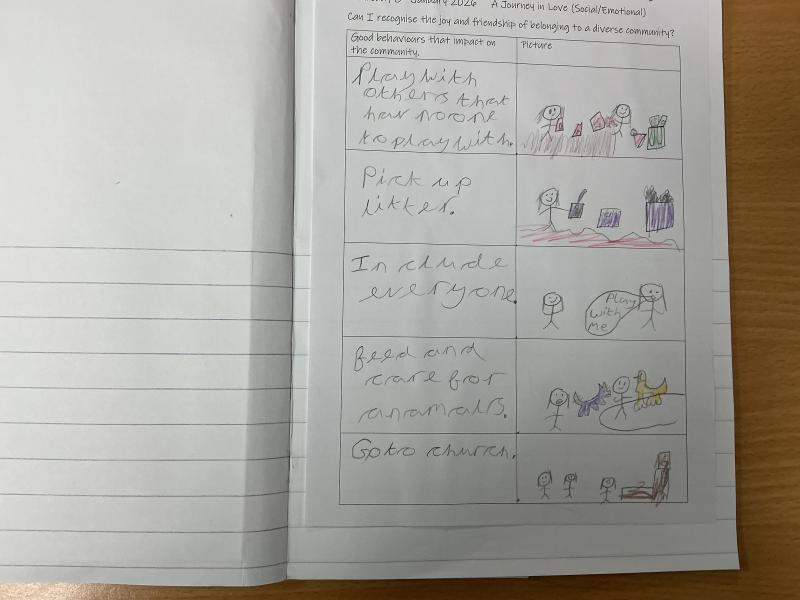 January 2026 A Journey in Love (Social/Emotional)
Can I recognise the joy and friendship of belonging to a diverse community?
Good behaviours that impact on
the community.
Picture
Play with
others that
hav no one
to play with.
Pick up
litter.
Include
everyone.
Play
with
me
feed and
care for
anamals.
Go to church.